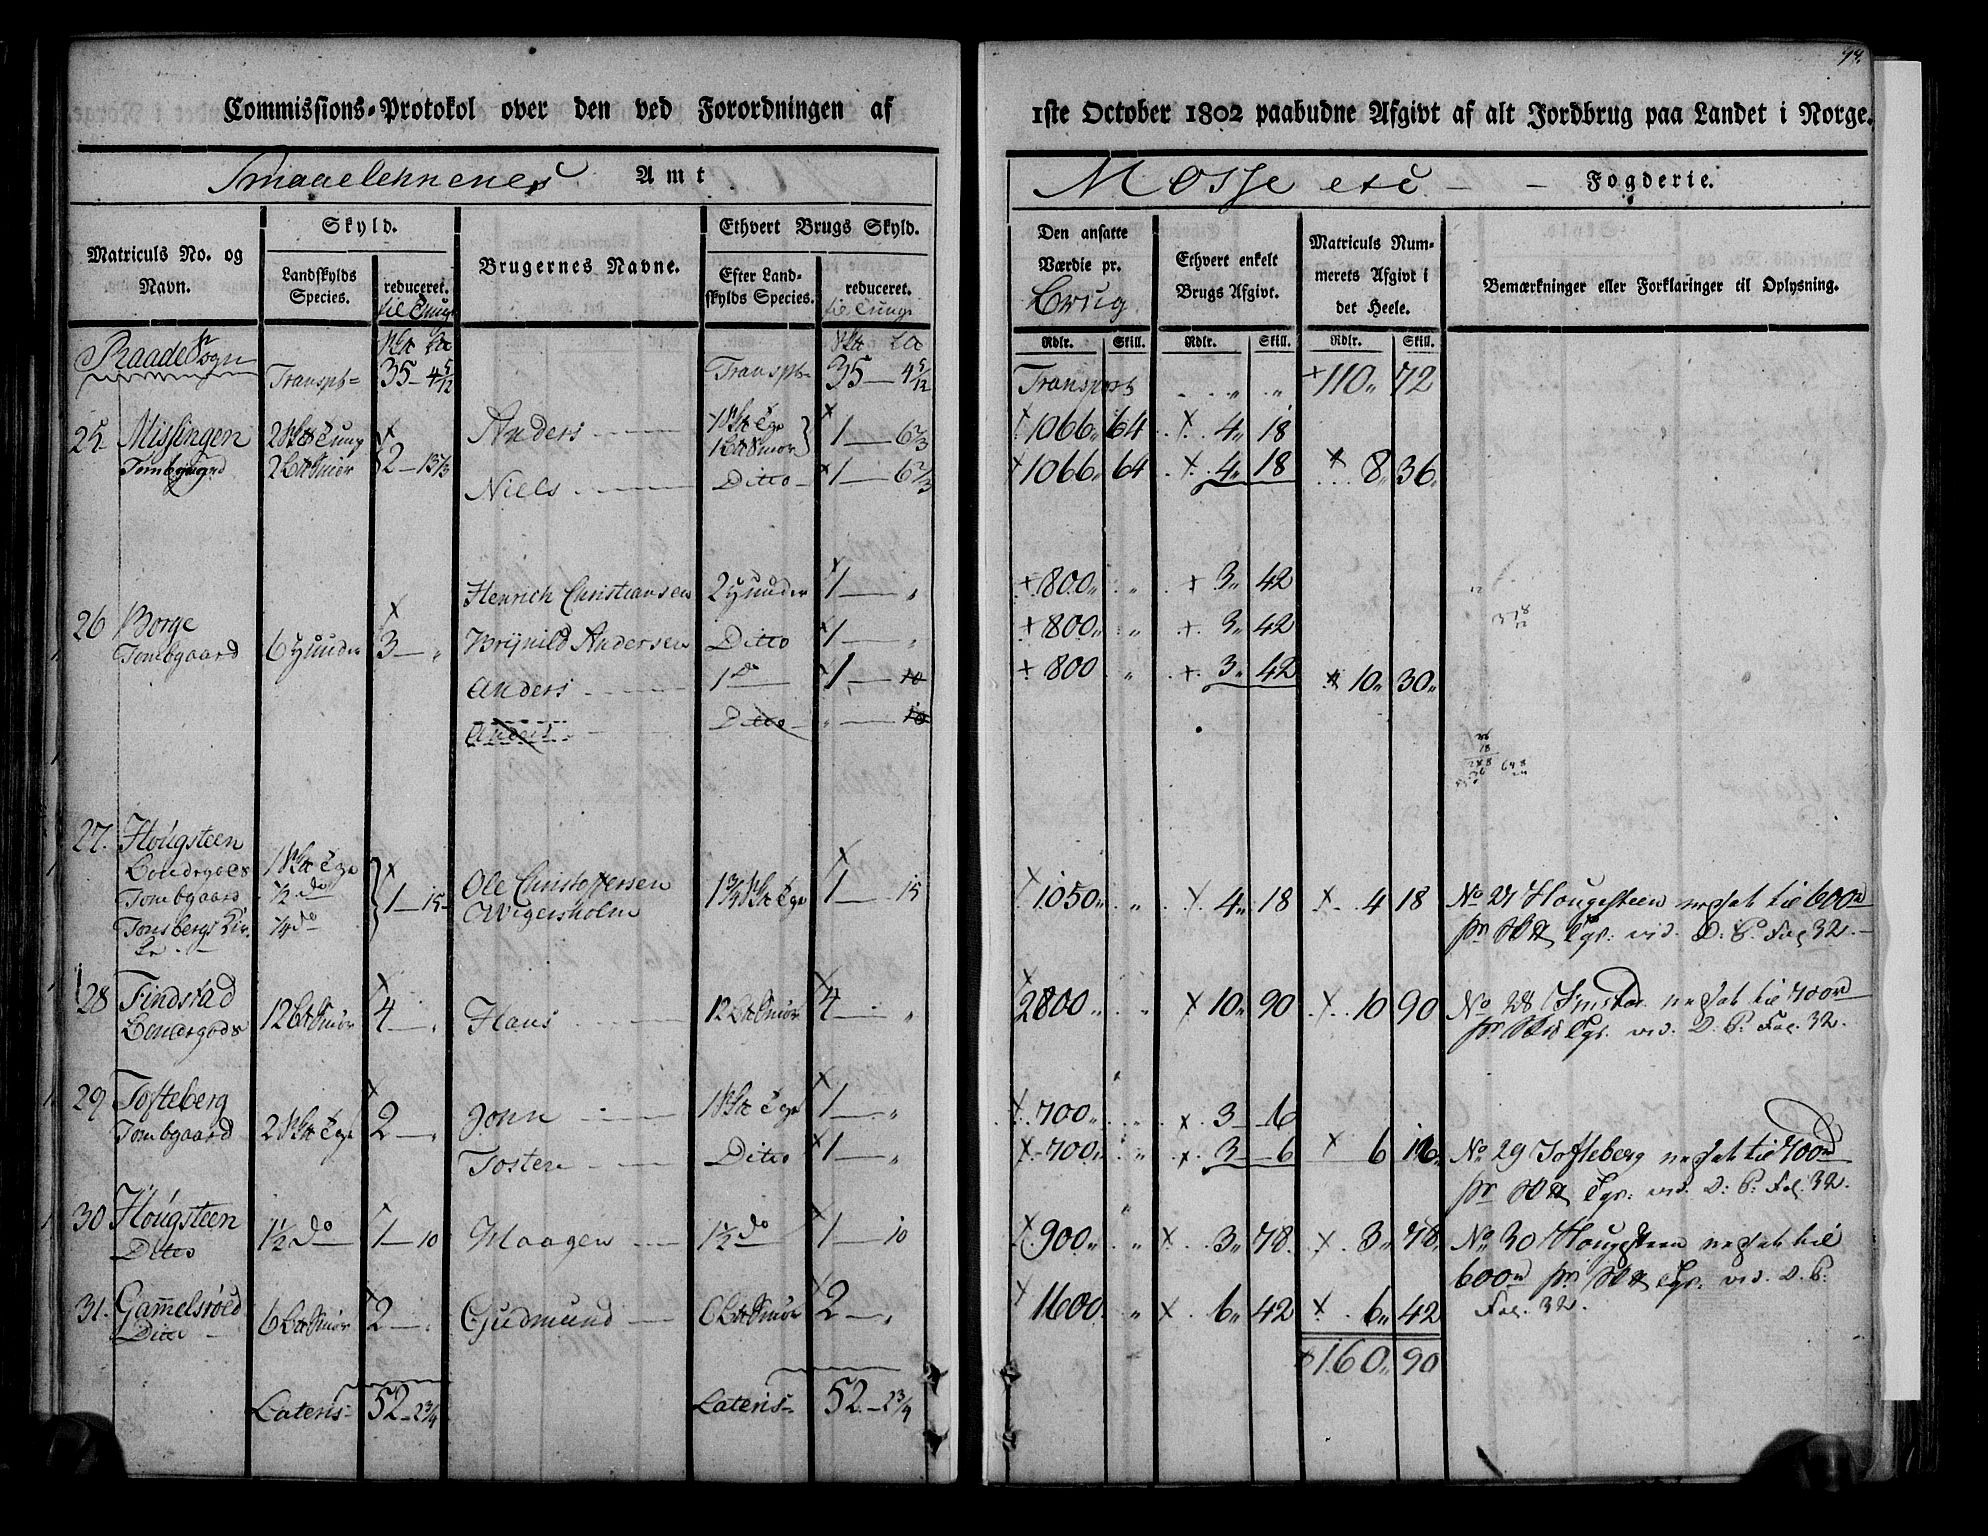 94.
Commissions-Protokol over den ved Forordningen af
1ste October 1802 paabudne Afgivt af alt Jordbrug paa Landet i Norge.
Smaaelehnenes Amt
Mosse etc - - Fogderie.
Matriculs No. og Navn.
Skyld.
Landskylds Species.
reduceret. til Tunge
Brugernes Navne.
Ethvert Brugs Skyld.
Efter Landskylds Species.
reduceret. til Tunge
Den ansatte Værdie pr. Brug
Ethvert enkelt Brugs Afgivt.
Matriculs Nummerets Afgivt i det Heele.
Bemærkninger eller Forklaringer til Oplysning.
Rdlr. Skill. Rdlr. Skill. Rdlr. Skill.
Raade Sogn Transpt= 35 - 4 5/12 Transpt= 35 - 4 5/12 Transport " " " + 110 " 72
25 Missingen 2 Tung Anders 1 Tge 1 Smör } 1 - 6 2/3 1066 " 64 4 " 18
Tombgaard 2 Smör 2 - 13 1/3 Niels Ditto 1 - 6 2/3 1066 " 64 4 " 18 8 " 36
Henrich Christiansen 2 Huuder 1 - " 800 " " 3 " 42
26 Borge Tombgaard 6 Huuder 3 - " Brynild Andersen Ditto 1 - " 800 " " 3 " 42
Anders 1 do 1 - 10 800 " 3 " 42 10 " 30
Anders Ditto " - 10
27. Hougsteen
Bondegods 1 Tge
Tombgaard 1/2 do 1 - 15 Ole Christoffersen 1 3/4 Tge 1 - 15 1050 " " 4 " 18 4 18 No 27 Hougesteen nedsat til 600 rd
Tonsbergs Kir- 1/4 do Wigersholm pr. Tge. vid. D. P. Fol. 32.
ke
28 Findstad 12 Smör 4 - " Hans 12 Smör 4 - " 2800 " " 10 " 90 10 90 No 28 Finstad nedsat til 700 rd
Bondegods pr. Tge. vid. D. P. Fol. 32.
29 Tofteberg 2 Tge 2 - " John 1 Tge 1 - " 700 " " 3 - 6
Tombgaard Tosten Ditto 1 - " 700 " " 3 - 6 6 12 No 29 Tofteberg nedsat til 700 rd
pr. Tge: vid. D: P. Fol. 32.
30 Hougsteen 1 1/2 do 1 - 10 Haagen 1 1/2 do 1 - 10 900 " " 3 " 78 3 " 78 No 30 Hougesteen nedsat til
Ditto 600 rd pr. Tge. vid. D. P.
31. Gam̄elsröed 6 Smör 2 - " Gudmund 6 Smör 2 - " 1600 " 6 " 42 6 " 42 Fol. 32.
Ditto
160 " 90
Lateris - 52 - 2 3/4 Lateris - 52 - 2 3/4